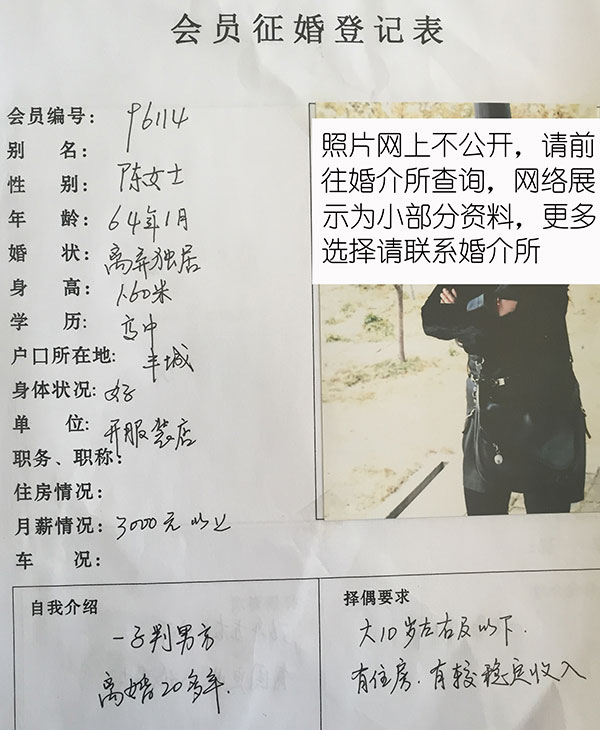 会员征婚登记表
会员编号： 96114
别 名： 陈女士
性 别：
年 龄： 64年1月
婚 状： 离弃独居
身 高： 1.60米
学 历： 高中
户口所在地: 丰城
身体状况: 好
单 位: 开服装店
职务、职称：
住房情况：
月薪情况： 3000元以上
车 况：
照片网上不公开，请前
往婚介所查询，网络展
示为小部分资料，更多
选择请联系婚介所
自我介绍
一子判男方
离婚20多年.
择偶要求
大10岁左右及以下.
有住房.有较稳定收入